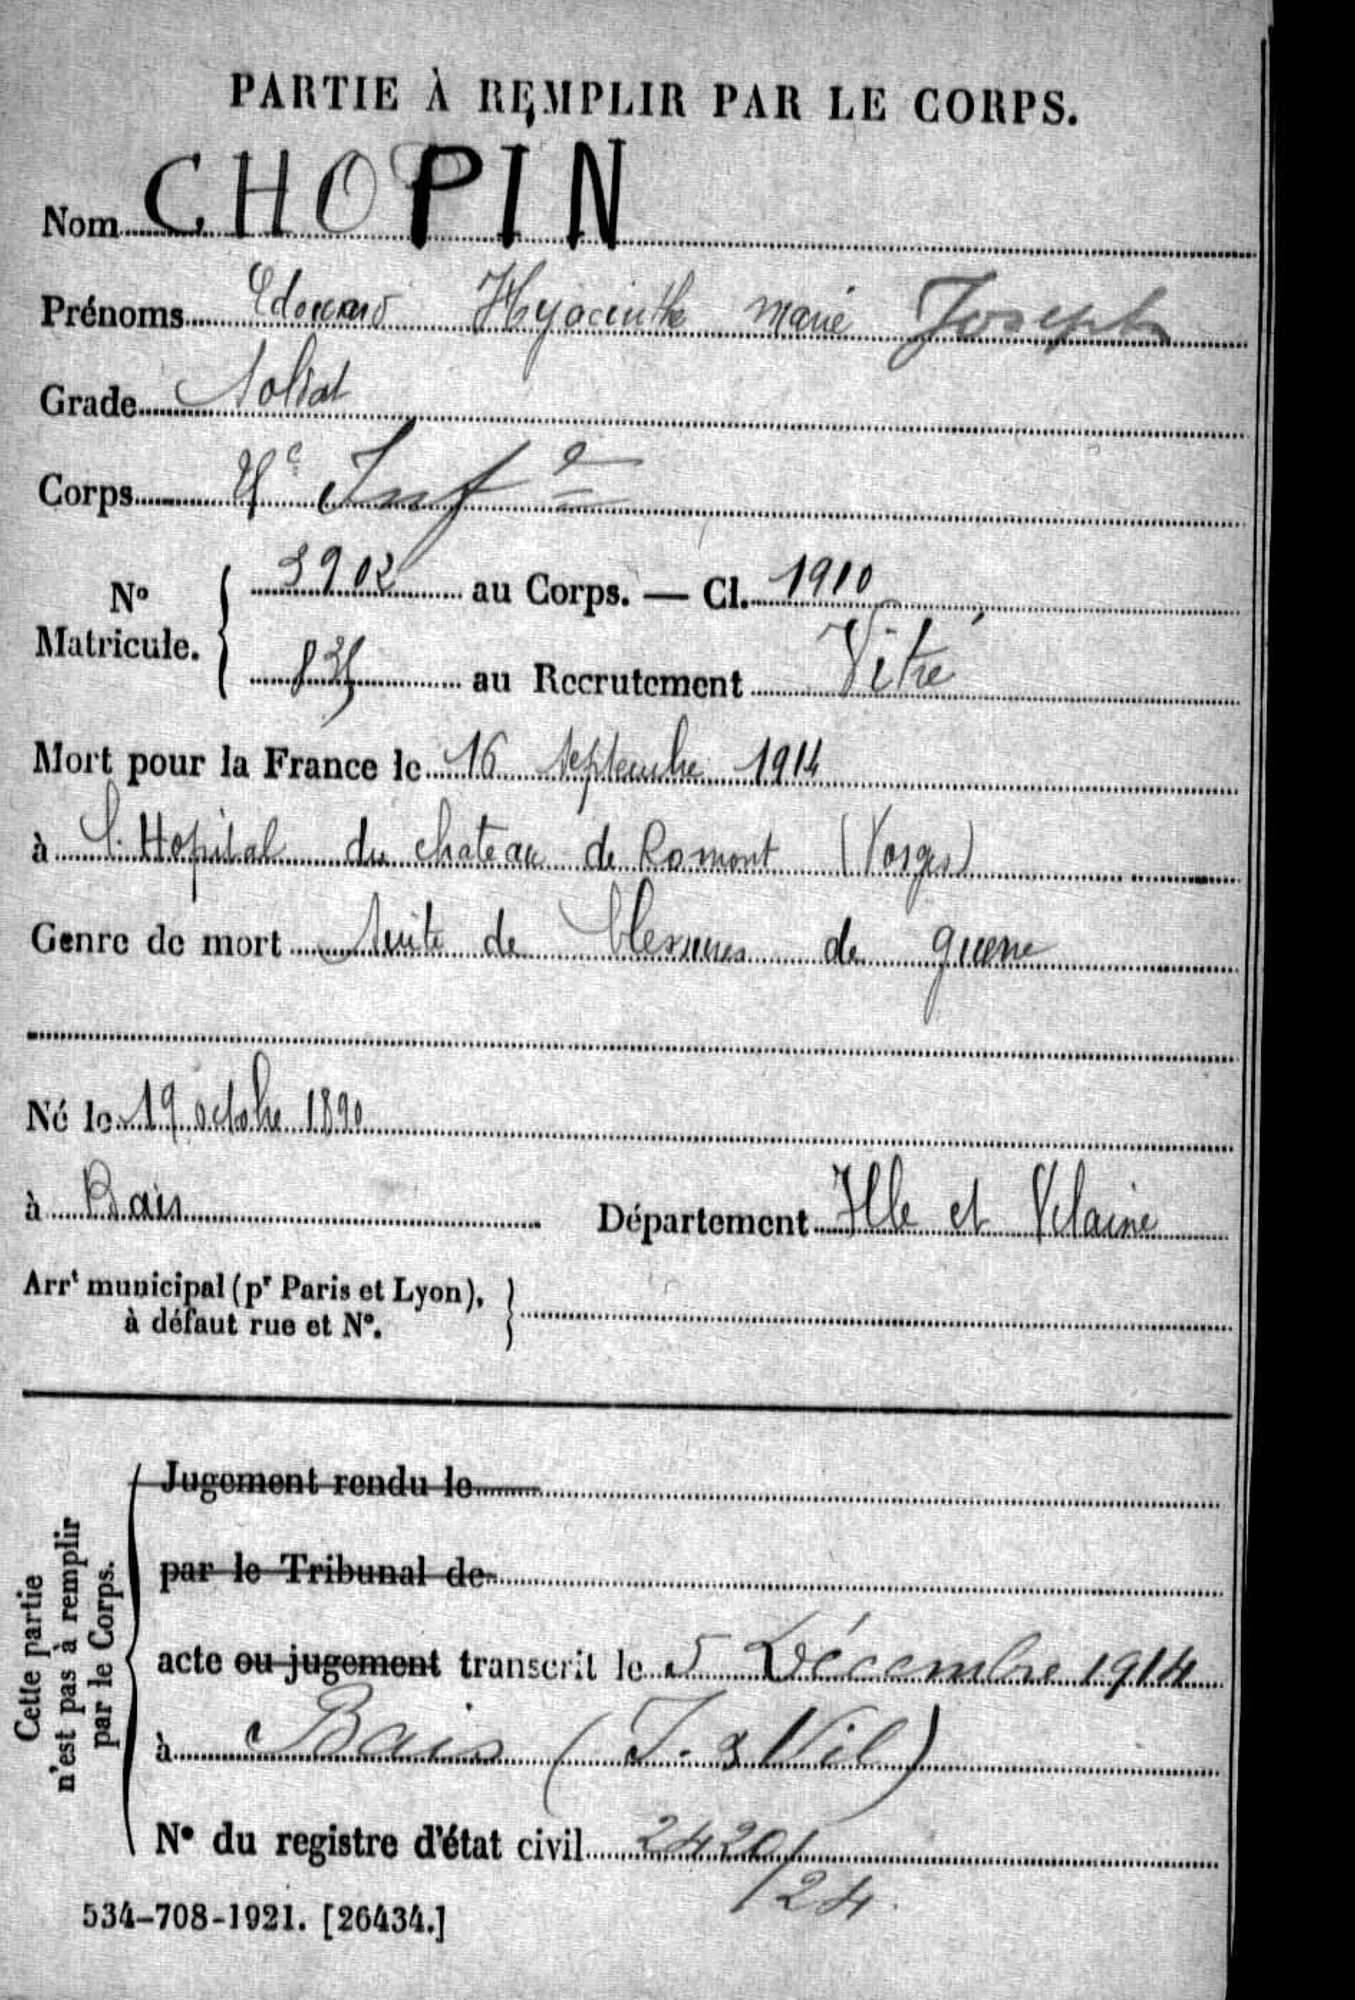 PARTIE À REMPLIR PAR LE CORPS.
Nom CHOPIN
Prénoms Edouard Hyacinthe Marie Joseph
Grade Soldat
Corps Inf ie
N° Matricule. 3902 au Corps. — Cl. 1910
835 au Recrutement Vitré
Mort pour la France le 16 Septembre 1914
à l'Hopital du chateau de Romont (Vosges)
Genre de mort Suite de blessures de guerre
Né le 19 octobre 1890
à Bais Département Ille et Vilaine
Arrt municipal (pr Paris et Lyon),
à défaut rue et N°.
Cette partie
n'est pas à remplir
par le Corps.
Jugement rendu le
par le Tribunal de
acte ou jugement transcrit le 5 Décembre 1914
à Bais (I. & Vil)
N° du registre d'état civil 2420/24
534-708-1921. [26434.]